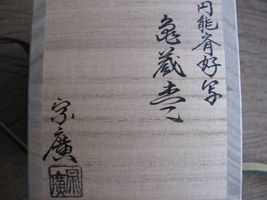 円能斎好写
亀蔵棗
宗廣
宗廣